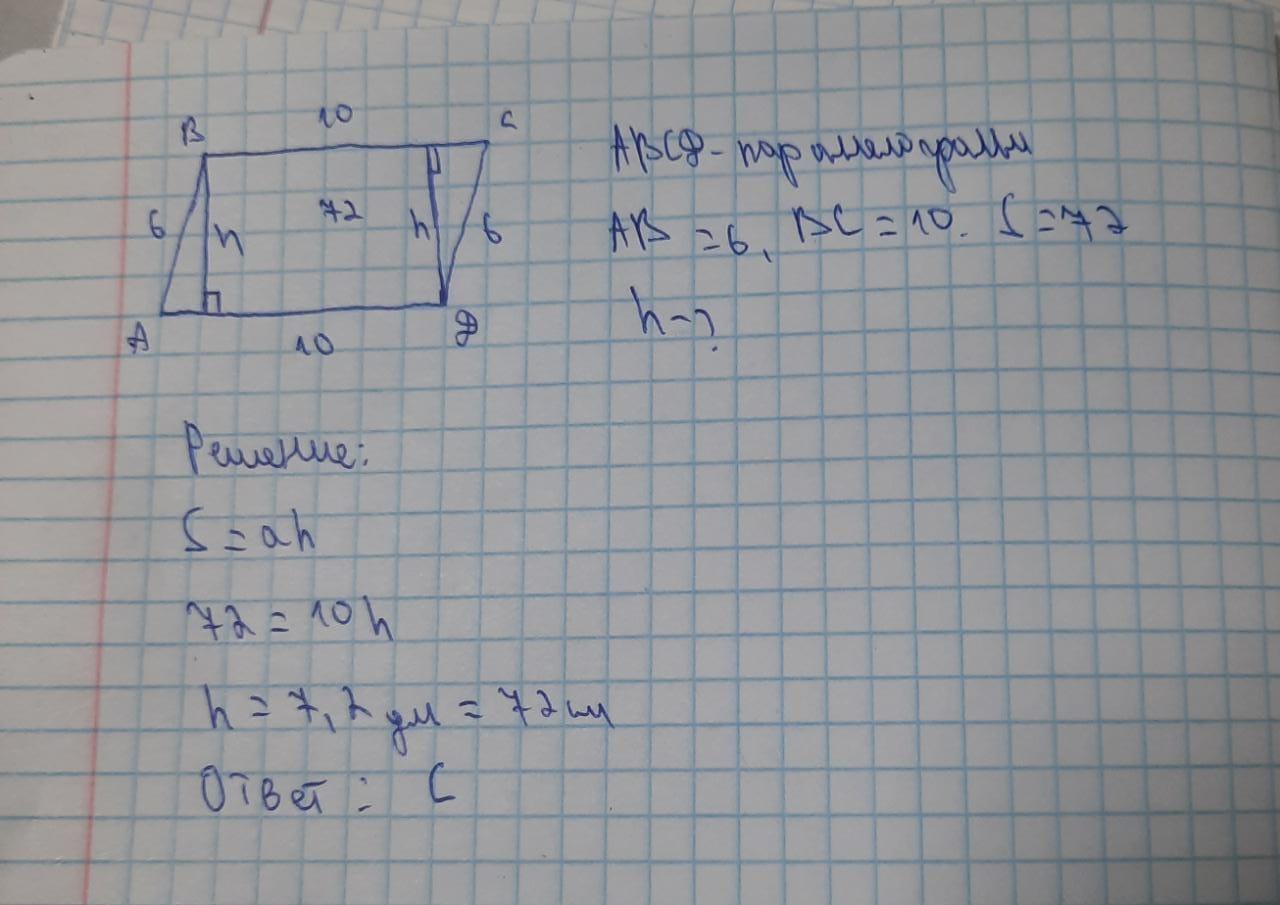 10
B
C
6
h
72
h
6
A
10
D
ABCD - параллелограмм
AB = 6, BC = 10. S = 72
h - ?
Решение:
S = ah
72 = 10h
h = 7,2 дм = 72 см
Ответ: C